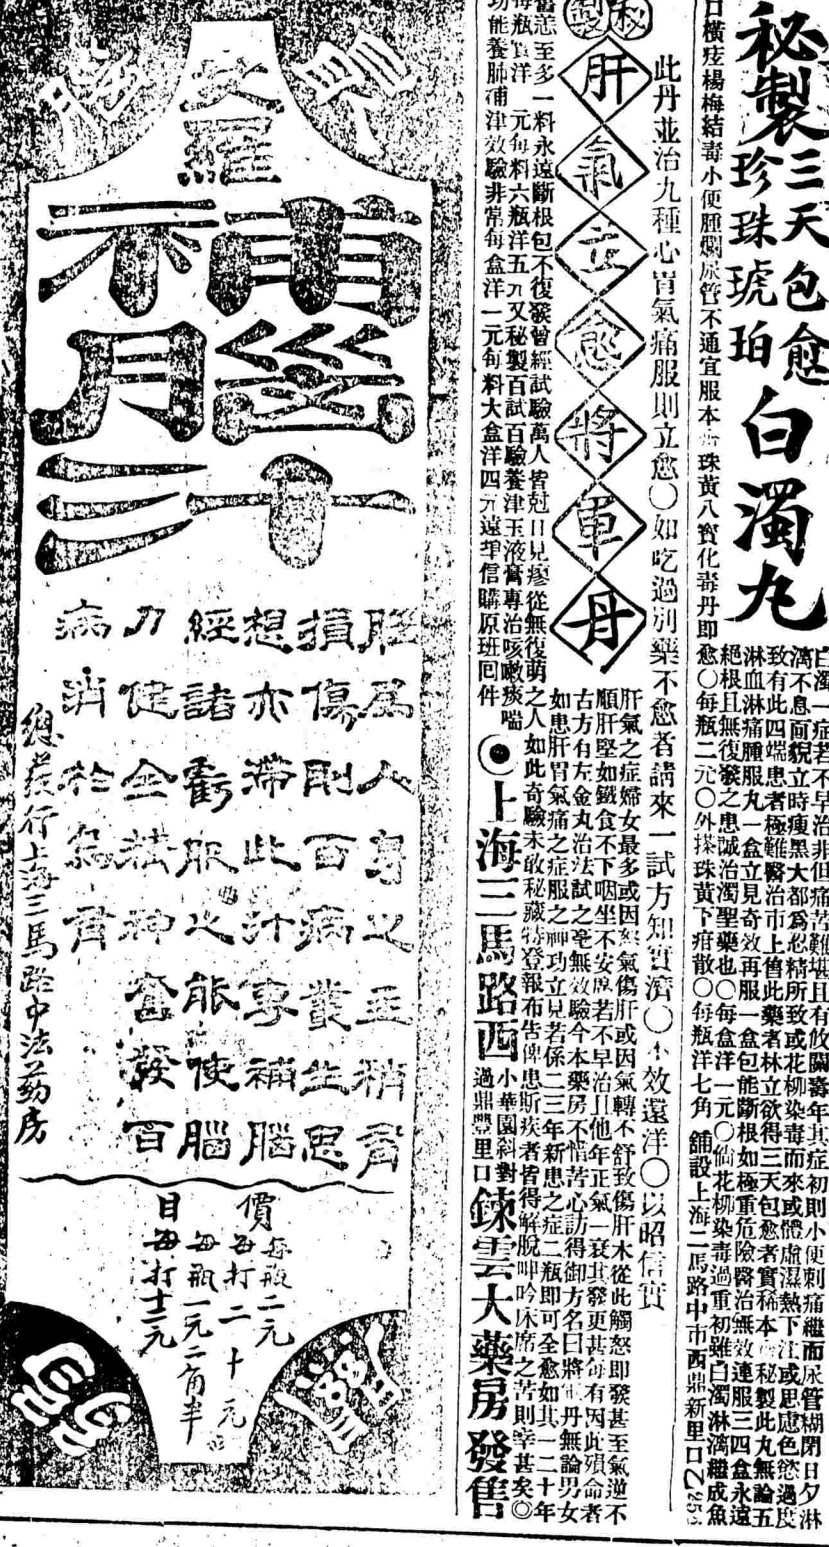 秘製
三天包愈
珍珠琥珀
白濁丸
白濁一症若不早治非但痛苦難堪且有攸關壽年其症初則小便刺痛繼而尿管糊閉日夕淋
漓不息面貌立時瘦黑大都爲忍精所致或花柳染毒而來或體虛濕熱下注或思慮色慾過度
致有此四端患者極難醫治市上售此藥者林立欲得三天包愈者實稀本秘製此丸無論五
淋血淋痛腫服丸一盒立見奇效再服一盒包能斷根如極重危險醫治無效連服三四盒永遠
絕根且無復發之患誠治濁聖藥也〇每盒洋一元〇倘花柳染毒過重初雖白濁淋漓繼成魚
口橫痃楊梅結毒小便腫爛尿管不通宜服本珠黃八寶化毒丹即
愈〇每瓶二元〇外搽珠黃下疳散〇每瓶洋七角 舖設上海二馬路中市西鼎新里口
此丹並治九種心胃氣痛服則立愈〇如吃過別藥不愈者請來一試方知實濟〇不效還洋〇以昭信實
秘製
肝氣立愈將軍丹
肝氣之症婦女最多或因怒氣傷肝或因氣轉不舒致傷肝木從此觸怒即發甚至氣逆不
順肝堅如鐵食不下咽坐不安席若不早治且他年正氣一衰其發更甚每有因此殞命者
古方有左金丸治法試之毫無效驗今本藥房不惜苦心訪得御方名曰將軍丹無論男女
如患肝胃氣痛之症服之神功立見若係二三年新患之症二瓶即可全愈如其一二十年
舊恙至多一料永遠斷根包不復發曾經試驗萬人皆尅日見瘳從無復萌之人如此奇驗未敢秘藏特登報布告俾患斯疾者皆得解脫呻吟床席之苦則幸甚矣◎
每瓶實洋一元每料六瓶洋五元又秘製百試百驗養津玉液膏專治咳嗽痰喘
功能養肺補津效驗非常每盒洋一元每料大盒洋四元遠埠信購原班回件
上海三馬路西
小華園斜對
過鼎豐里口
錬雲大藥房發售
艾羅
補腦汁
腦爲人身之主稍有
損傷則百病叢生思
想亦滯此汁專補腦
經諸虧服之能使腦
力健全精神奮發百
病消於無有
總發行上海三馬路中法藥房
價目
每瓶二元
每打二十元
每瓶一元二角半
每打十二元